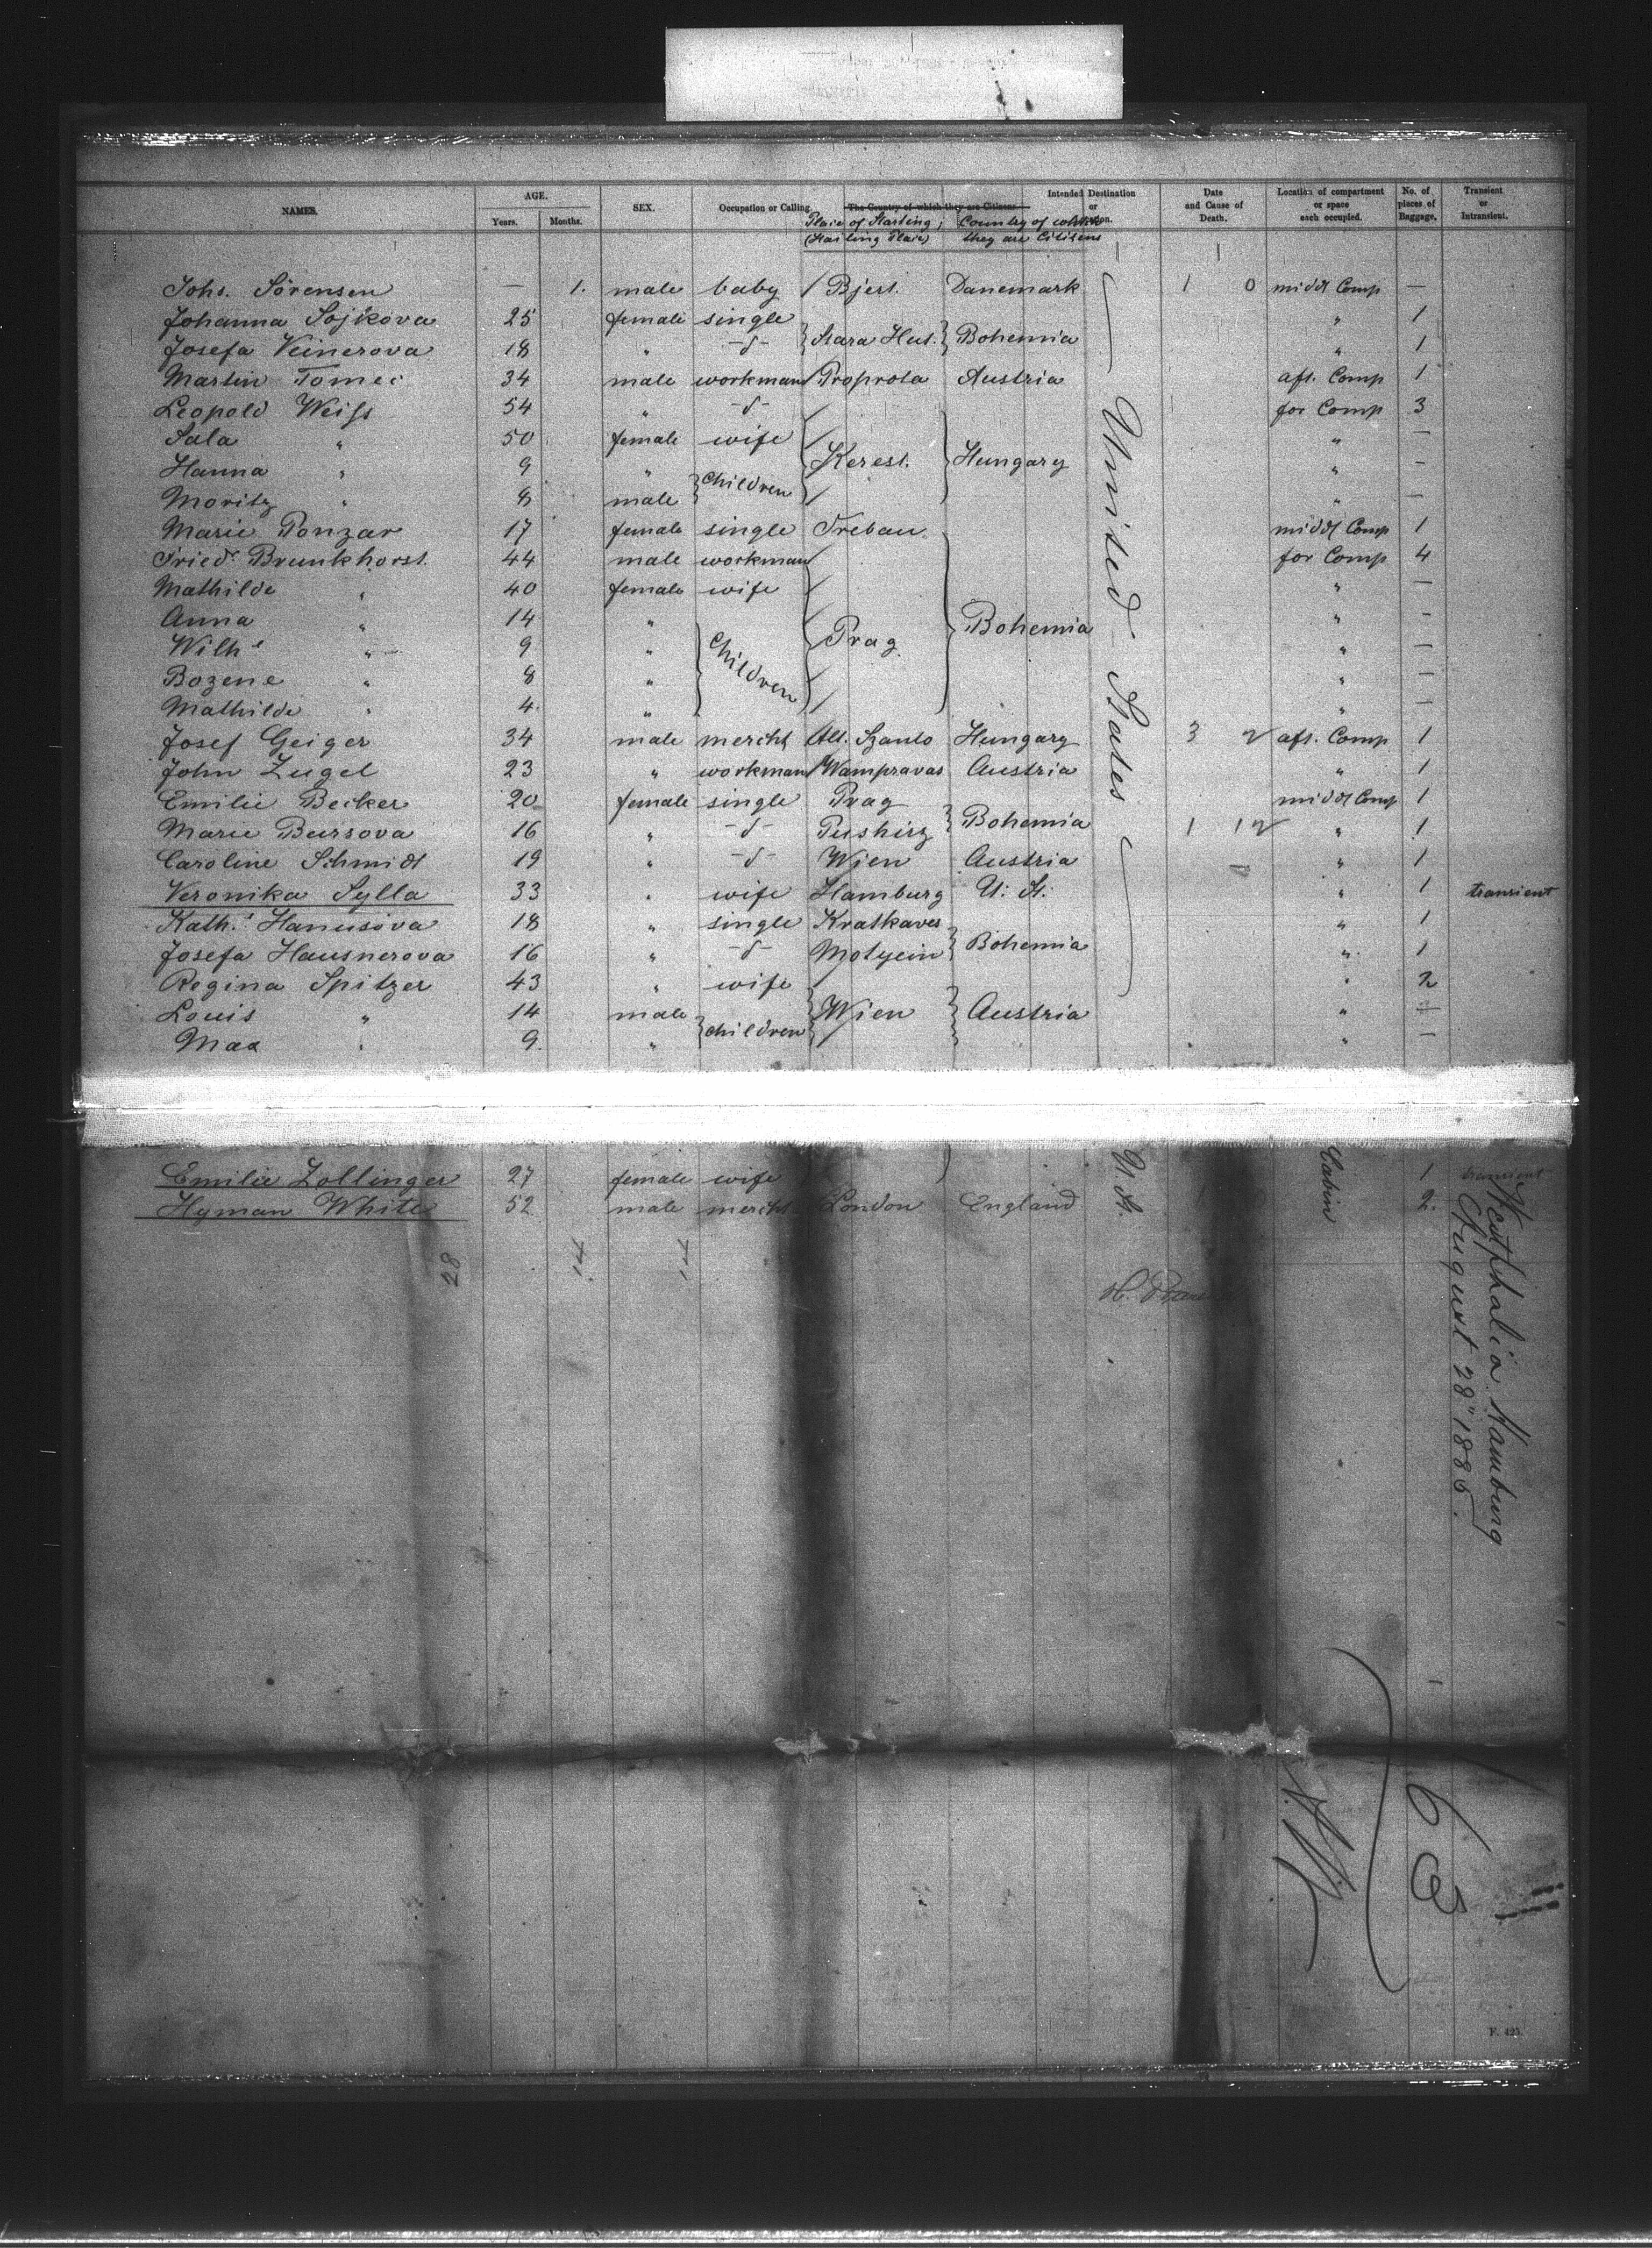 NAMES. AGE. SEX. Occupation or Calling. The Country of which they are Citizens Intended Destination or Date and Cause of Death. Location of compartment or space each occupied. No. of pieces of Baggage. Transient or Intransient.
Years. Months. Place of Starting; (Starting Place) Country of which they are Citizens
Johs. Sörensen — 1. male baby Bjert. Danemark 1 0 middl Comp —
Johanna Sojkova 25 female single " 1
Josefa Veinerova 18 " -d- Stara Hut. Bohemia " 1
Martin Tomec 34 male workman Proprota Austria aft. Comp 1
Leopold Weiss 54 " -d- for Comp 3
Sala " 50 female wife " —
Hanna " 9 " Children Kerest. Hungary " —
Moritz " 8 male " —
Marie Ponzar 17 female single Trebau middl Comp 1
Fried. Brunkhorst 44 male workman for Comp 4
Mathilde " 40 female wife " —
Anna " 14 " " —
Wilh " 9 " Children Prag Bohemia " —
Bozene " 8 " " —
Mathilde " 4. " " —
Josef Geiger 34 male mercht Alt. Szanto Hungary 3 2 aft. Comp 1
John Zugel 23 " workman Wampravas Austria " 1
Emilie Becker 20 female single Prag middl Comp 1
Marie Bursova 16 " -d- Pushirz Bohemia 1 12 " 1
Caroline Schmidt 19 " -d- Wien Austria " 1
Veronika Sylla 33 " wife Hamburg U. St. " 1 transient
Kath. Hanusova 18 " single Kratkaves " 1
Josefa Hausnerova 16 " -d- Motyein Bohemia " 1
Regina Spitzer 43 " wife " 2
Louis " 14 male children Wien Austria " —
Max " 9. " " —
United States
Emilie Zollinger 27 female wife 1 transient
Hyman White 52 male mercht London England 2.
U. St.
Cabin
82
Westphalia Hamburg
August 28" 1886.
63
F. 425.